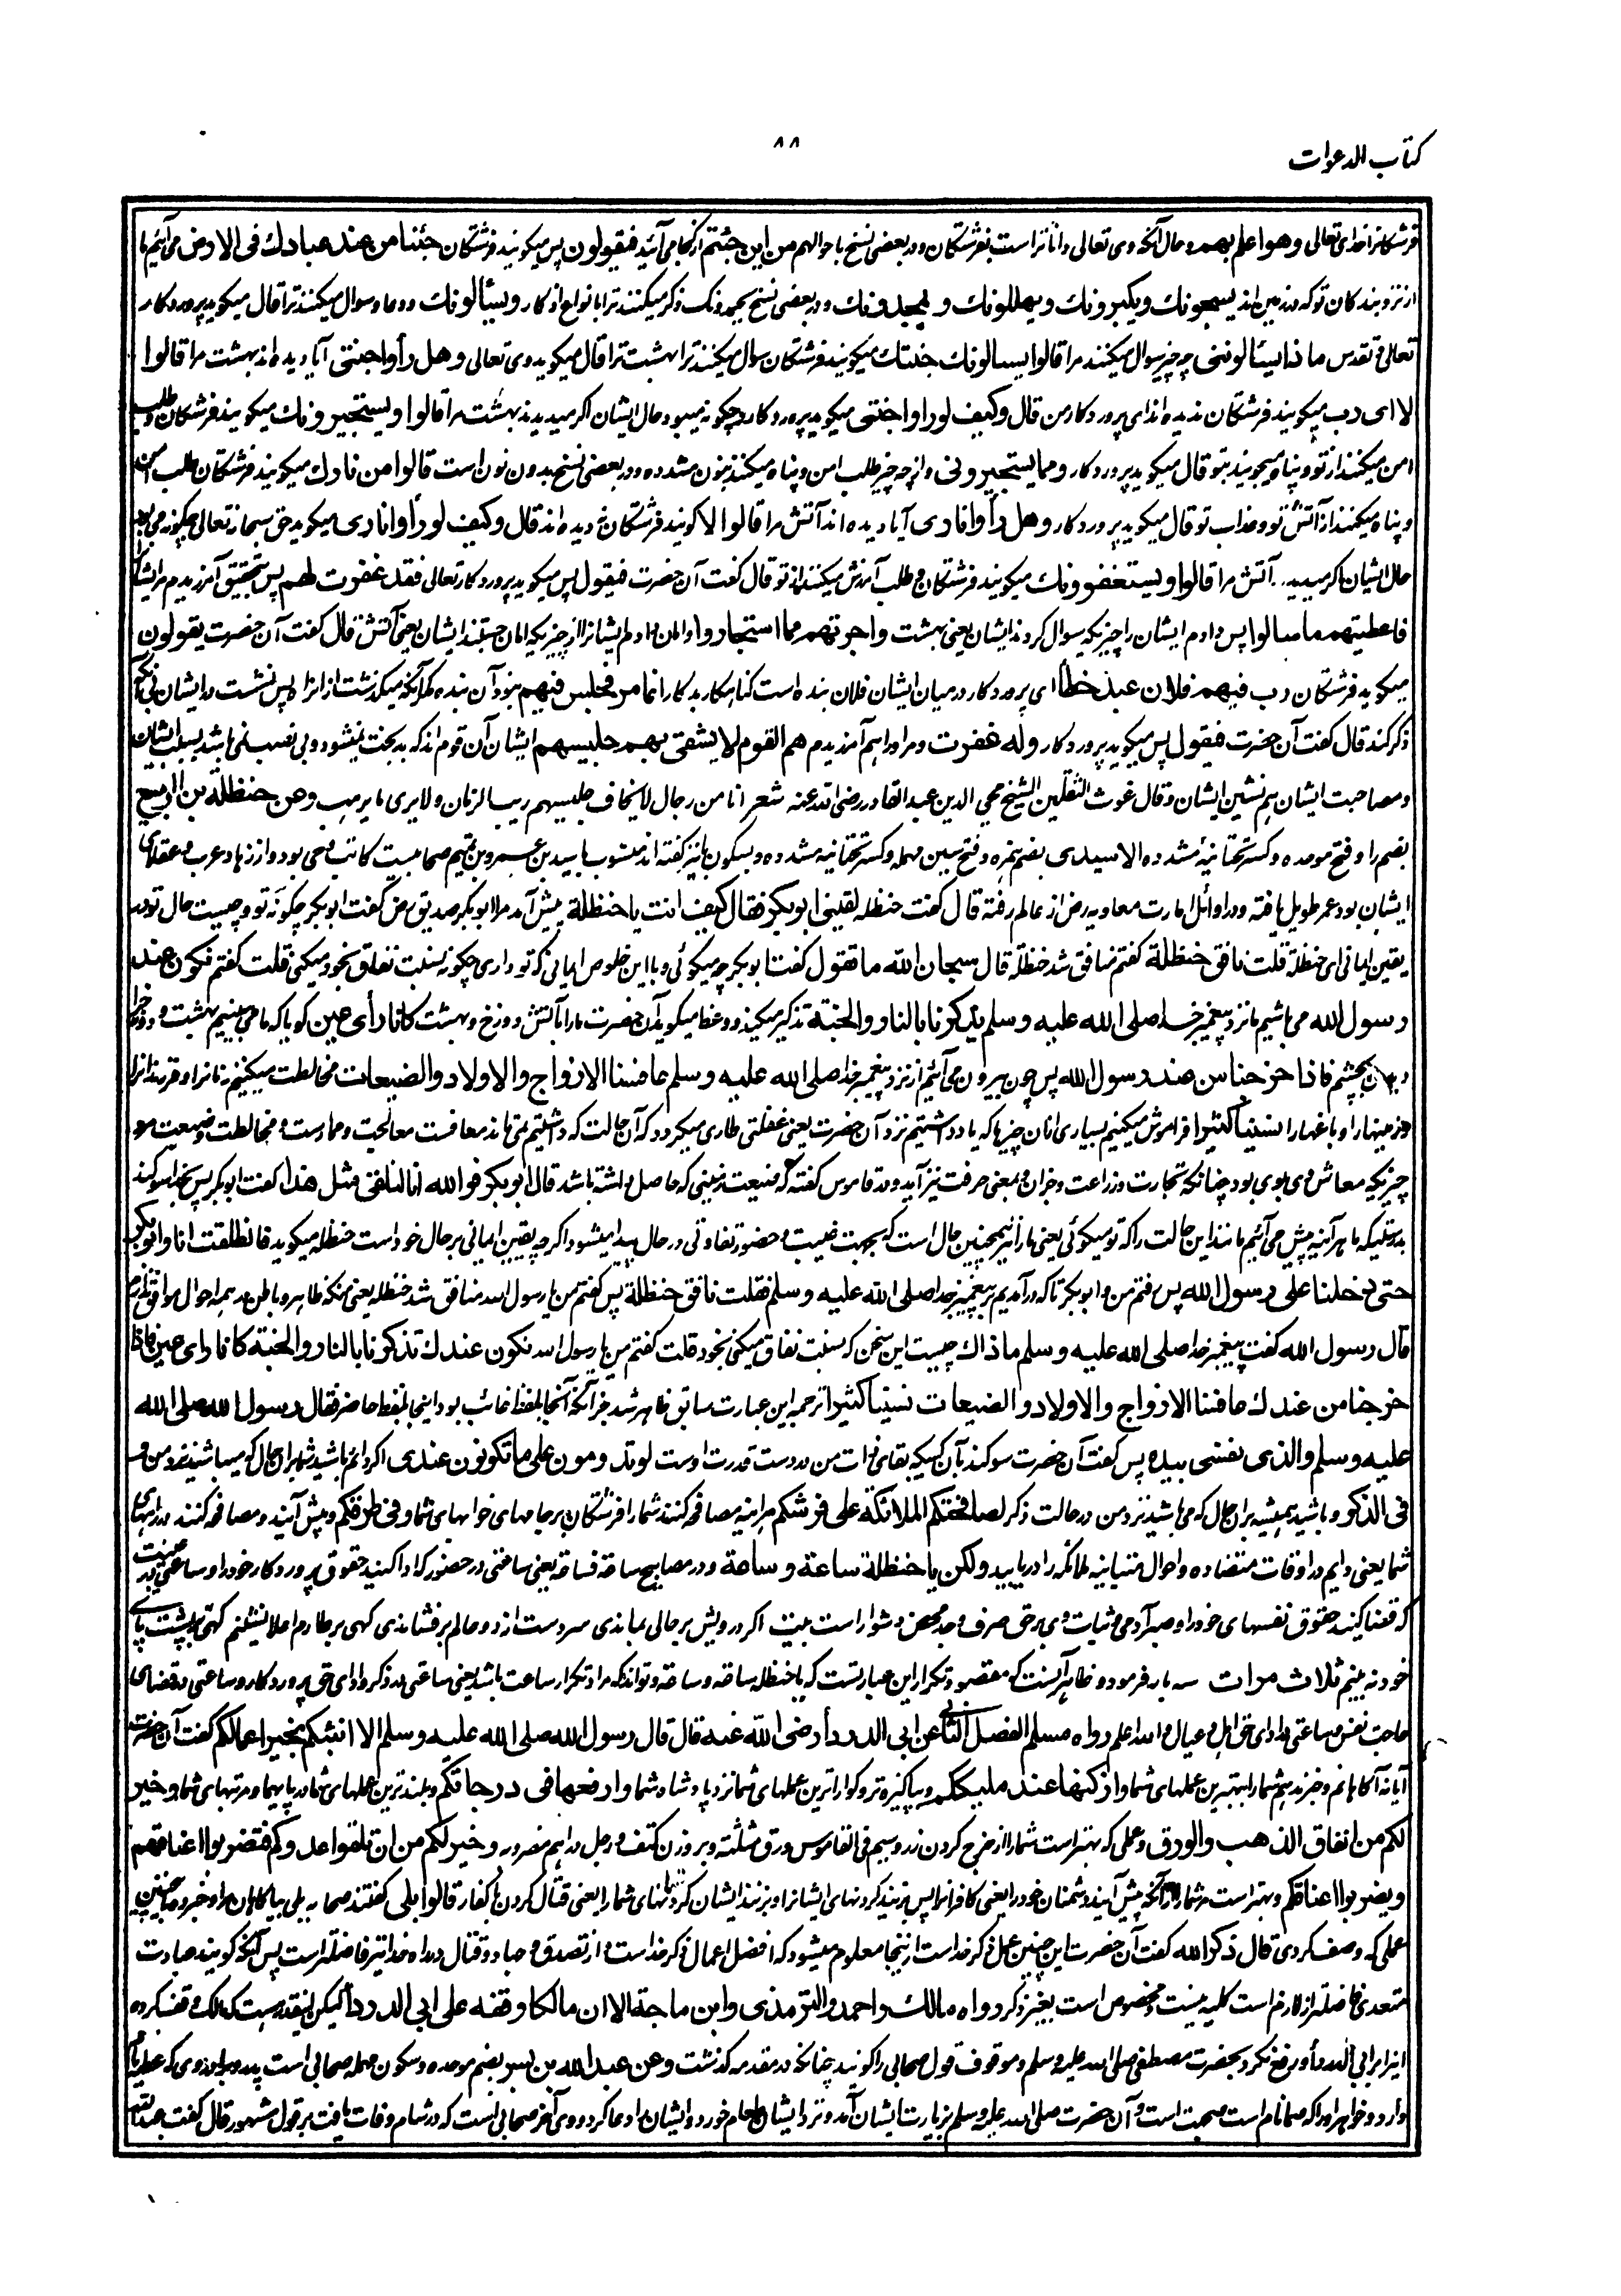 کتاب الدعوات
۸۸
فرشتگانرا خدای تعالی وهو اعلم بهم وحال آنکه وی تعالی داناتر است بفرشتگان ودر بعضی نسخ باحوالهم من این جئتم از کجا می آئید فیقولون پس میگویند فرشتگان جئنا من عند عبادك فی الارض می آئیم ما
از نزد بندگان تو که در زمین اند یسبحونك ویکبرونك ویهللونك ویمجدونك ودر بعضی نسخ یحمدونك ذکر میکنند ترا بانواع اذکار ویسألونك ودعا وسوال میکنند ترا قال میگوید پروردگار
تعالی وتقدس ماذا یسألوننی چه چیز سوال میکنند مرا قالوا یسالونك جنتك میگویند فرشتگان سوال میکنند ترا بهشت ترا قال میگوید وی تعالی وهل رأوا جنتی آیا دیده اند بهشت مرا قالوا
لا ای رب میگویند فرشتگان ندیده اند ای پروردگار من قال وکیف لو راوا جنتی میگوید پروردگار وچگونه میبود حال ایشان اگر میدیدند بهشت مرا قالوا ویستجیرونك میگویند فرشتگان وطلب
امن میکنند از تو وپناه میجویند بتو قال میگوید پروردگار ومما یستجیرونی واز چه چیز طلب امن وپناه میکنند بنون مشدده ودر بعضی نسخ بدون نون است قالوا من نارك میگویند فرشتگان طلب امن
وپناه میکنند از آتش تو وعذاب تو قال میگوید پروردگار وهل رأوا ناری آیا دیده اند آتش مرا قالوا لا گویند فرشتگان نه دیده اند قال وکیف لو رأوا ناری میگوید حق سبحانه تعالی چگونه می بود
حال ایشان اگر میدیدند آتش مرا قالوا ویستغفرونك میگویند فرشتگان وطلب آمرزش میکنند از تو قال گفت آن حضرت فیقول پس میگوید پروردگار تعالی قد غفرت لهم پس بتحقیق آمرزیدم مر ایشانرا
فاعطیتهم ما سالوا پس دادم ایشان را چیزیکه سوال کردند ایشان یعنی بهشت واجرتهم مما استجاروا وامان دادم ایشانرا از چیزیکه امان جستند ایشان یعنی آتش قال گفت آن حضرت یقولون
میگوید فرشتگان رب فیهم فلان عبد خطأ ای پروردگار در میان ایشان فلان بنده است گناهگار بدکار انما مر فجلس فیهم نبود آن بنده مگر آنکه میگذشت از انراه پس نشست در ایشان بی آنکه
ذکر کند قال گفت آن حضرت فیقول پس میگوید پروردگار وله غفرت ومر اورا هم آمرزیدم هم القوم لا یشقی بهم جلیسهم ایشان آن قوم اند که بدبخت نمیشود وبی نصیب نمی باشد بسبب ایشان
ومصاحبت ایشان هم نشین ایشان وقال غوث الثقلین الشیخ محی الدین عبد القادر رضی الله عنه شعر انا من رجال لا یخاف جلیسهم ریب الزمان ولا یری ما یرهب وعن حنظلة بن الربیع
بضم را وفتح موحده وکسر تحتانیه مشدده الاسیدی بضم همزه وفتح سین مهمله وکسر تحتانیه مشدده وبسکون یا نیز گفته اند منسوب باسید بن عمرو بن تمیم صحابیست کاتب وحی بود واز زهاد عرب وعقلای
ایشان بود عمر طویل یافته ودر اوائل امارت معاویه رض از عالم رفته قال گفت حنظله لقینی ابوبکر فقال کیف انت یا حنظلة پیش آمد مرا ابوبکر صدیق رض گفت ابوبکر چگونه تو وچیست حال تو در
یقین ایمانی ای حنظله قلت نافق حنظلة گفتم منافق شد حنظله قال سبحان الله ما تقول گفت ابوبکر چه میگوئی وبا این خلوص ایمانی که تو داری چگونه نسبت نفاق بخود میکنی قلت گفتم نکون عند
رسول الله می باشیم ما نزد پیغمبر خدا صلی الله علیه وسلم یذکرنا بالنار والجنة تذکیر میکند ووعظ میگوید آن حضرت مارا بآتش دوزخ وبهشت کانا رأی عین گویا که ما می بینیم بهشت ودوزخ را
بچشم فاذا خرجنا من عند رسول الله پس چون بیرون می آئیم از نزد پیغمبر خدا صلی الله علیه وسلم عافسنا الازواج والاولاد والضیعات مخالطت میکنیم زنانرا وفرزندانرا
وزمینها را وباغها را نسینا کثیرا فراموش میکنیم بسیاری ازان چیزها که یاد داشتیم نزد آن حضرت یعنی غفلتی طاری میگردد که آن حالت که داشتیم نمی ماند معافست معالجت وممارست ومخالطت وضیعت مرد
چیزیکه معاش وی بوی بود چنانکه تجارت وزراعت وجزان وبمعنی حرفت نیز آید ودر قاموس گفته که ضیعت زمینی که حاصل داشته باشد قال ابوبکر فوالله انا لنلقی مثل هذا گفت ابوبکر پس بخدا سوگند
بدرستیکه ما هر آئینه پیش می آئیم مانند این حالت را که تو میگوئی یعنی مارا نیز همچنین حال است که بجهت غیبت وحضور تفاوتی در حال پیدا میشود اگرچه یقین ایمانی بر حال خود است حنظله میگوید فانطلقت انا وابوبکر
حتی دخلنا علی رسول الله پس رفتم من وابوبکر تا که درآمدیم بر پیغمبر خدا صلی الله علیه وسلم فقلت نافق حنظلة پس گفتم من یا رسول الله منافق شد حنظله یعنی منکه ظاهر وباطن در همه احوال موافق ندارم
قال رسول الله گفت پیغمبر خدا صلی الله علیه وسلم ما ذاك چیست این سخن که نسبت نفاق میکنی بخود قلت گفتم من یا رسول الله نکون عندك تذکرنا بالنار والجنة کانا رای عین فاذا
خرجنا من عندك عافسنا الازواج والاولاد والضیعات نسینا کثیرا ترجمه این عبارت سابق ظاهر شد جز آنکه آنجا بلفظ غائب بود اینجا بلفظ حاضر فقال رسول الله صلی الله
علیه وسلم والذی نفسی بیده پس گفت آن حضرت سوگند بآن کسیکه بقای ذات من در دست قدرت اوست لو تدومون علی ما تکونون عندی اگر دائم باشید شما بران حال که میباشید نزد من و
فی الذکر وباشید همیشه بران حال که می باشید نزد من در حالت ذکر لصافحتکم الملائکة علی فرشکم هر اینه مصافحه کنند شما را فرشتگان بر جامهای خوابهای شما وفی طرقکم وپیش آیند ومصافحه کنند در راههای
شما یعنی دایم در اوقات متضاده واحوال متباینه ملائکه را دریابید ولکن یا حنظلة ساعة وساعة ودر مصابیح ساعة فساعة یعنی ساعتی در حضور که ادا کنید حقوق پروردگار خود را وساعتی در غیبت
که قضا کنید حقوق نفسهای خود را وصبر آدمی وثبات وی بر حق صرف وجد محض دشوار است بیت اگر درویش بر حالی بماندی سر دست از دو عالم برفشاندی گهی بر طارم اعلا نشینم گهی بر پشت پای
خود نه بینم ثلاث مرات سه بار فرمود وظاهر آنست که مقصود تکرار این عبارتست که یا حنظله ساعة وساعة وتواند که مراد تکرار ساعت باشد یعنی ساعتی در ذکر وادای حق پروردگار وساعتی در قضای
حاجت نفس وساعتی در ادای حق اهل وعیال والله اعلم رواه مسلم الفصل الثانی عن ابی الدردأ رضی الله عنه قال قال رسول الله صلی الله علیه وسلم الا انبئکم بخیر اعمالکم گفت آن حضرت
آیا نه آگاهانم وخبر ندهم شما را ببهترین عملهای شما وازکیها عند ملیککم وپاکیزه تر وگواراترین عملهای شما نزد پادشاه شما وارفعها فی درجاتکم وبلندترین عملهای شما در پایها ومرتبهای شما وخیر
لکم من انفاق الذهب والورق وعملی که بهتر است شما را از خرج کردن زر وسیم فی القاموس ورق مثلثه وبر وزن کتف ورجل دراهم مضروبه وخیر لکم من ان تلقوا عدوکم فتضربوا اعناقهم
ویضربوا اعناقکم وبهتر است مر شما را از آنکه پیش آئید دشمنان خود را یعنی کافرانرا پس بزنید گردنهای ایشانرا وبزنند ایشان گردنهای شما را یعنی قتال کردن با کفار قالوا بلی گفتند صحابه بلی بیاگاهان مارا وخبر ده چنین
عملی که وصف کردی قال ذکر الله گفت آن حضرت این چنین عمل ذکر خداست ازینجا معلوم میشود که افضل اعمال ذکر خداست واز تصدق وجهاد وقتال در راه خدا نیز فاضلتر است پس آنکه گویند عبادت
متعدی فاضلتر از لازم است کلیه نیست ومخصوص است بغیر ذکر رواه مالك واحمد والترمذی وابن ماجة الا ان مالکا وقفه علی ابی الدردأ لیکن اینقدر هست که مالک وقف کرده
اینرا بر ابی الدردأ ورفع نکرد بحضرت مصطفی صلی الله علیه وسلم وموقوف قول صحابی را گویند چنانکه در مقدمه گذشت وعن عبد الله بن بسر بضم موحده وسکون مهمله صحابی است پدر وبرادر وی که عطیه نام
دارد وخواهر اورا که صما نام است صحبت است وآن حضرت صلی الله علیه وسلم بزیارت ایشان آمد ونزد ایشان طعام خورد وایشان را دعا کرد ووی آخر صحابی است که در شام وفات یافت بر قول مشهور قال گفت عبد الله